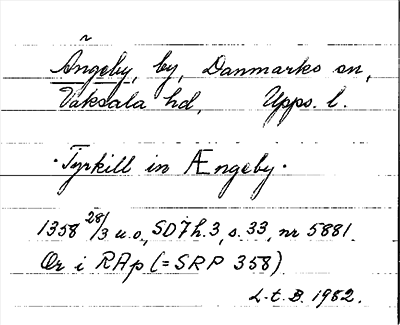 Ängeby, by, Danmarks sn,
Vaksala hd, Upps. l.
· Tyrkill in Ængeby ·
1358 28/3 u.o., SD 7 h. 3, s. 33, nr 5881.
Or i RAp (= SRP 358)
L.t.B. 1982.